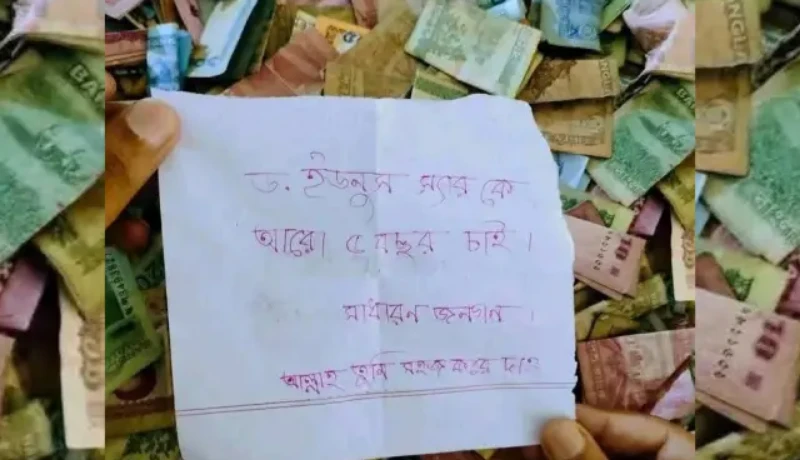 ড. ইউনুস স্যার কে
আরো ৫ বছর চাই।
সাধারন জনগন।
আল্লাহ তুমি সহজ করে দাও